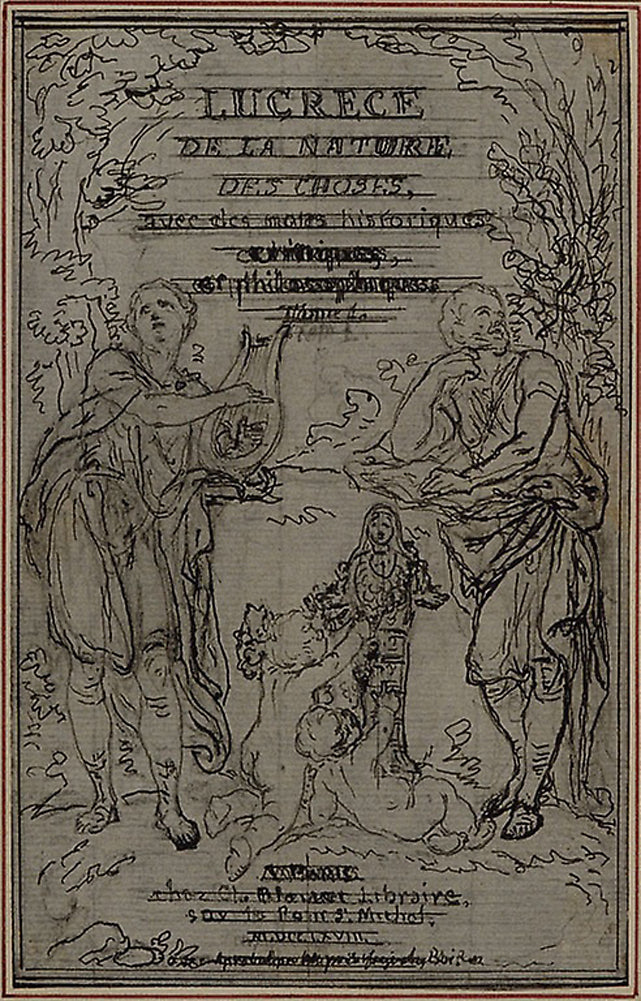 LUCRECE
DE LA NATURE
DES CHOSES,
avec des notes historiques
critiques,
et philosophiques
Tome I.
Tom I.
A PARIS
chez Cl. Bleuet Libraire,
sur le Pont St. Michel.
M.DCC.LXVIII.
Roi